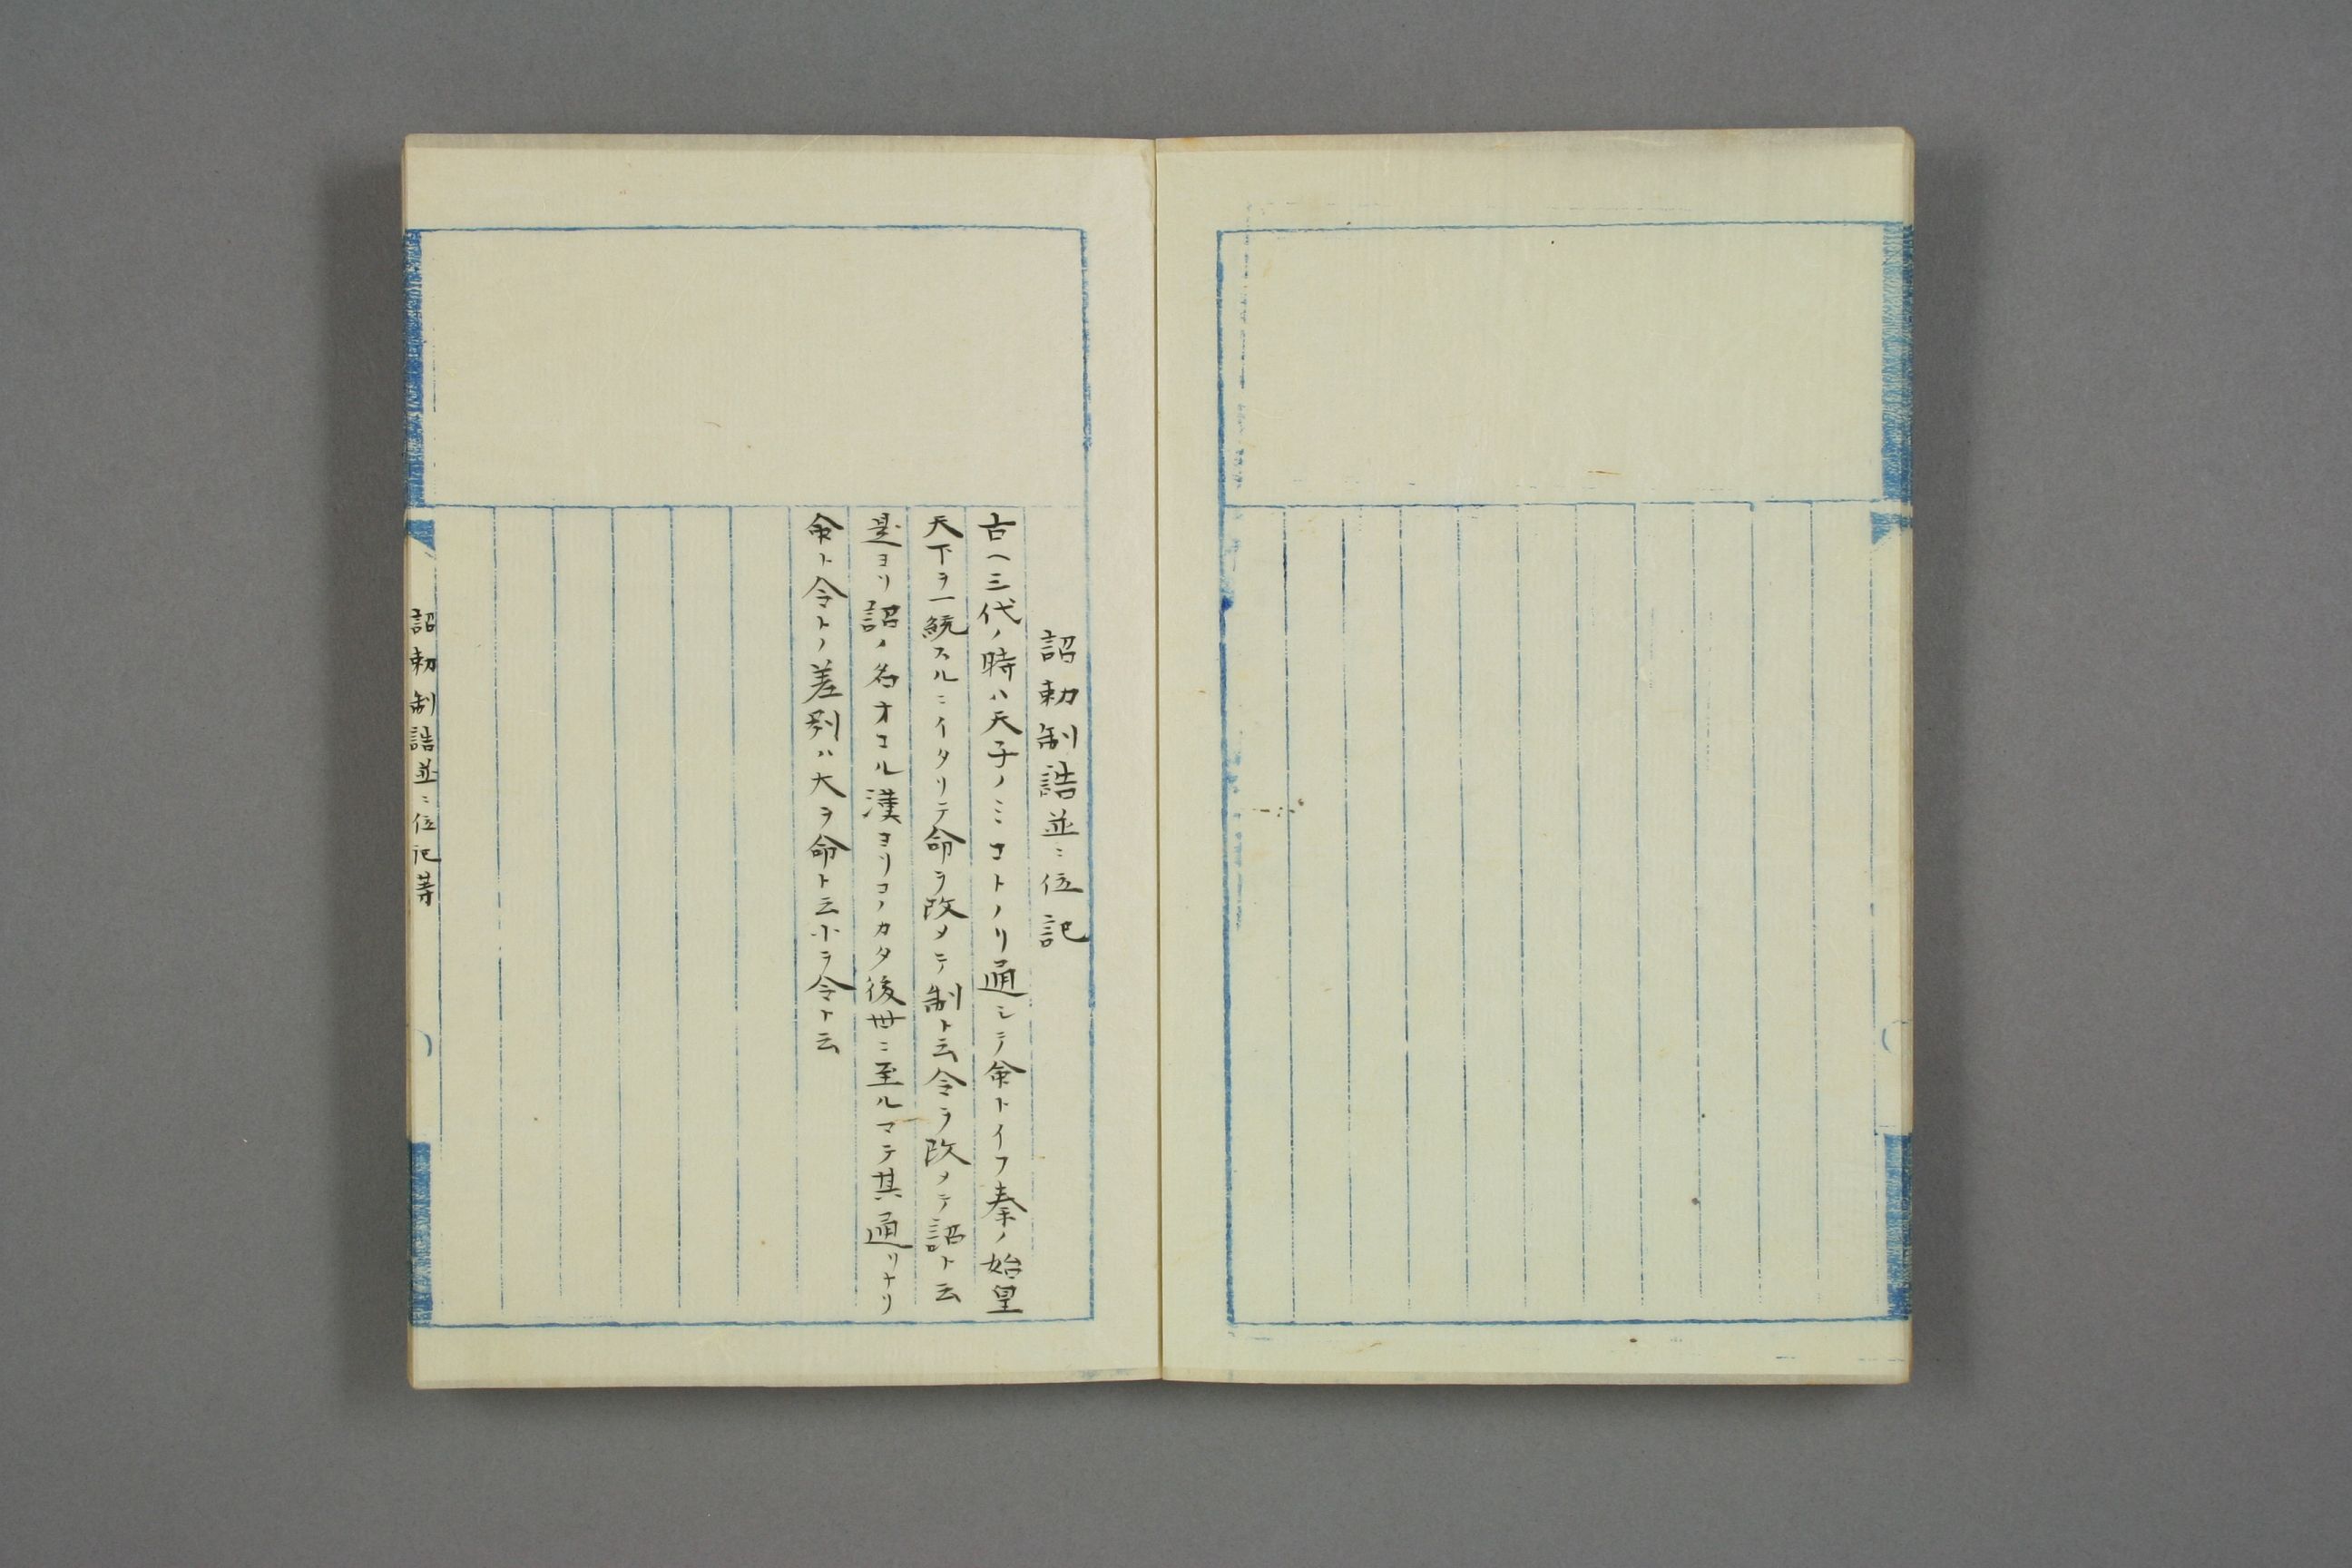 詔勅制誥並ニ位記
古ヘ三代ノ時ハ天子ノミコトノリ通シテ命トイフ秦ノ始皇
天下ヲ一統スルニイタリテ命ヲ改メテ制ト云令ヲ改メテ詔ト云
是ヨリ詔ノ名オコル漢ヨリコノカタ後世ニ至ルマテ其通リナリ
命ト令トノ差別ハ大ヲ命ト云小ヲ令ト云
詔勅制誥並ニ位記等